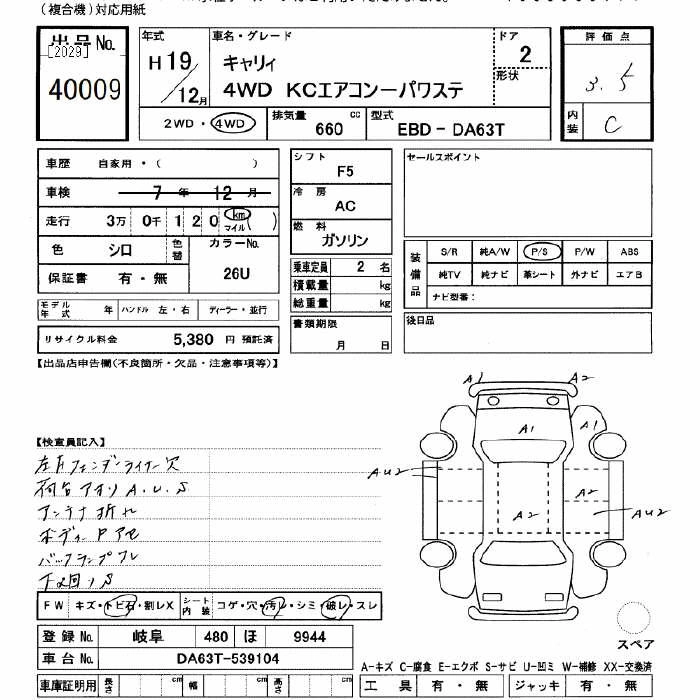 (複合機)対応用紙
出品No.
[2029]
40009
年式
H19/12月
車名・グレード
キャリィ
4WD KCエアコンーパワステ
ドア
2
形状
2WD・4WD
排気量 660 cc
型式 EBD-DA63T
評価点
3.5
内装 C
車歴 自家用・( )
車検 7年 12月
走行 3万 0千 1 2 0 km マイル ( )
色 シロ 色替
カラーNo.
26U
保証書 有・無
モデル年式 年 ハンドル 左・右 ディーラー・並行
リサイクル料金 5,380 円 預託済
シフト
F5
冷房
AC
燃料
ガソリン
乗車定員 2 名
積載量 kg
総重量 kg
書類期限
月 日
セールスポイント
装備品
S/R 純A/W P/S P/W ABS
純TV 純ナビ 革シート 外ナビ エアB
ナビ型番:
後日品
【出品店申告欄(不良箇所・欠品・注意事項等)】
【検査員記入】
左Fフェンダーライナー欠
荷台アオリA.U.S
アンテナ折れ
ボディーPアセ
バックランプワレ
下回りS
A1 A2
A1 A1
AU2 A2
A2 AU2
FW キズ・トビ石・割レX シート内装 コゲ・穴・汚レ・シミ・破レ・スレ
スペア
登録No. 岐阜 480 ほ 9944
車台No. DA63T-539104
A-キズ C-腐食 E-エクボ S-サビ U-凹ミ W-補修 XX-交換済
車庫証明用 長さ cm 幅 cm 高さ cm
工具 有・無 ジャッキ 有・無